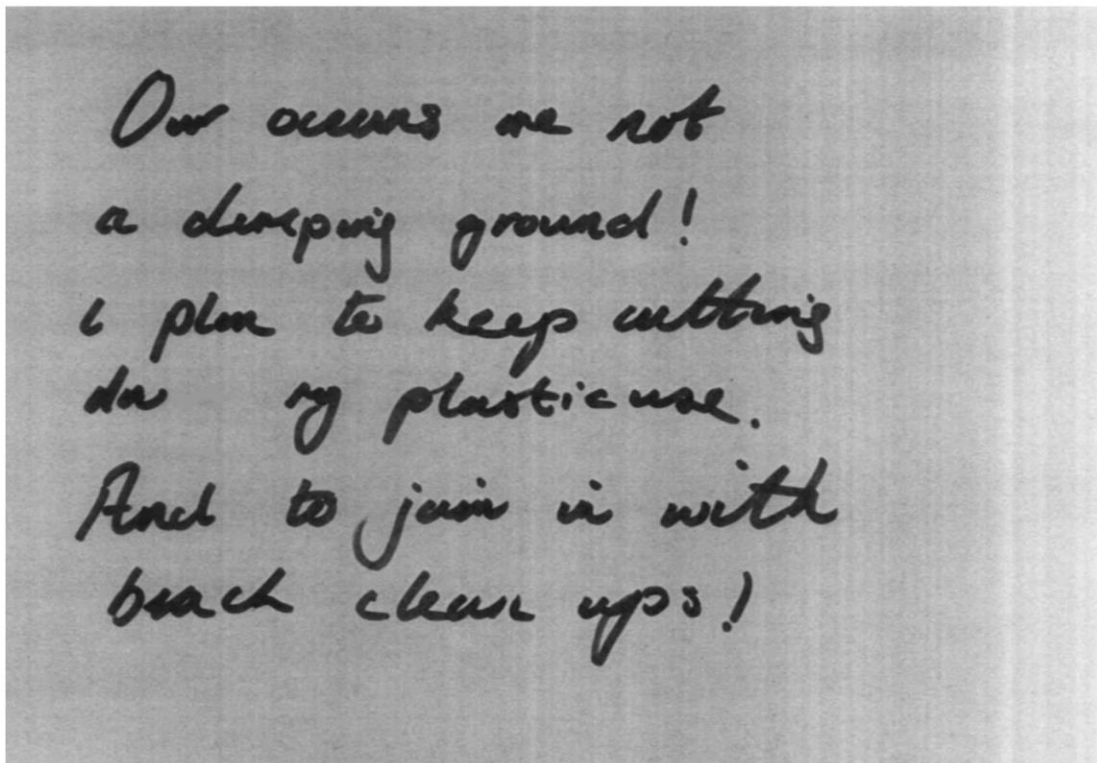 Our oceans are not
a dumping ground!
i plan to keep cutting
down my plastic use.
And to join in with
beach clean ups!